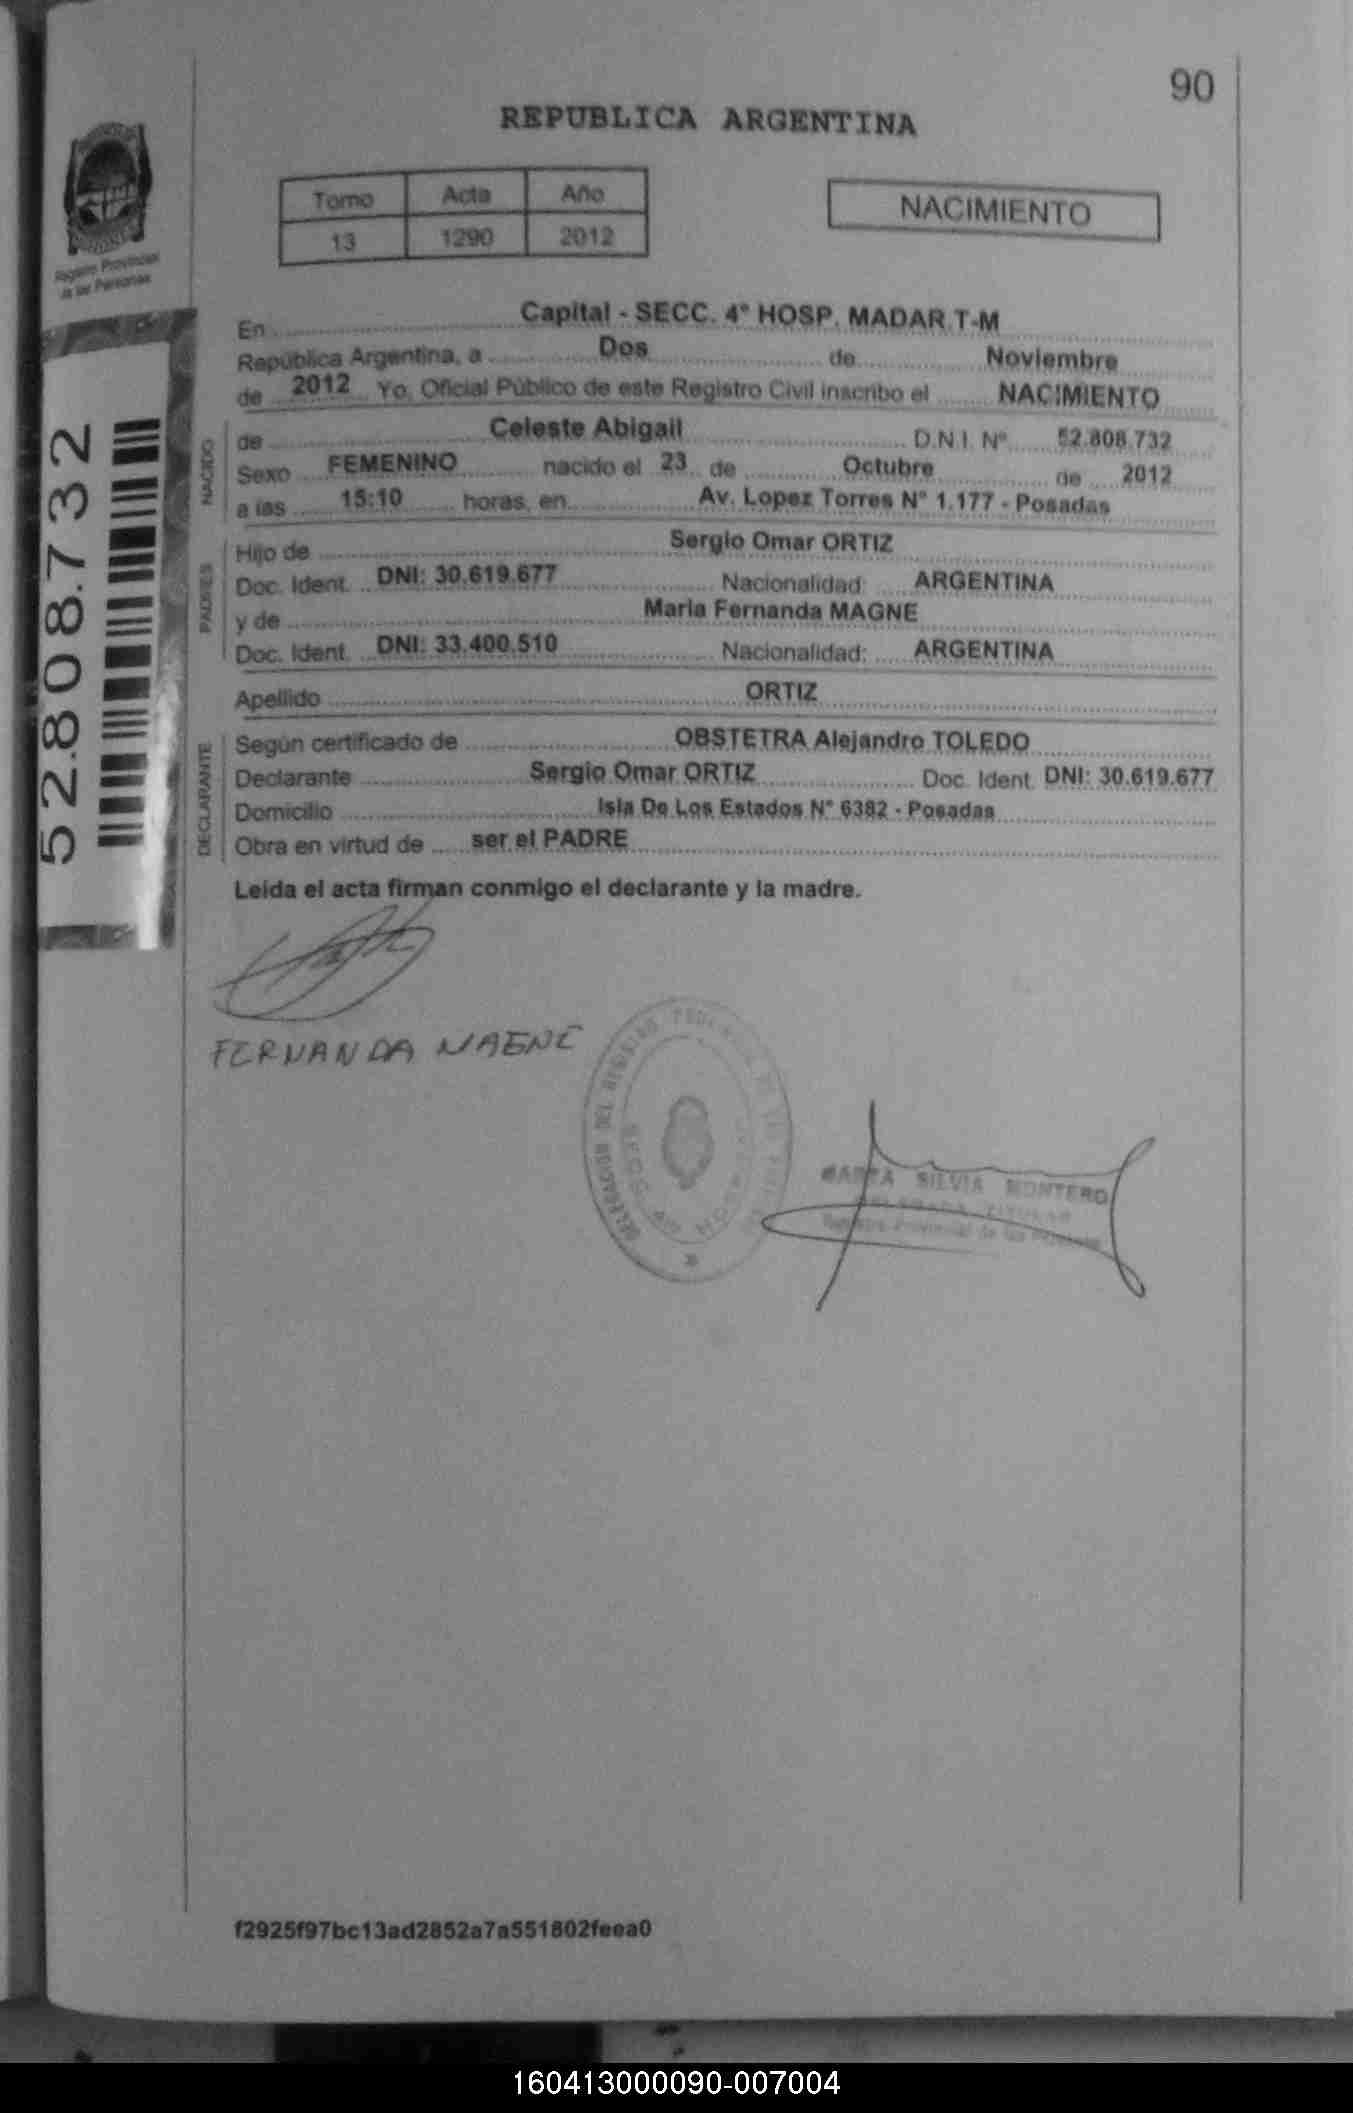 90
REPUBLICA ARGENTINA
Tomo Acta Año
13 1290 2012
NACIMIENTO
Registro Provincial
de las Personas
52.808.732
En Capital - SECC. 4° HOSP. MADAR.T-M
República Argentina, a Dos de Noviembre
de 2012 Yo, Oficial Público de este Registro Civil inscribo el NACIMIENTO
NACIDO
de Celeste Abigail D.N.I. N° 52.808.732
Sexo FEMENINO nacido el 23 de Octubre de 2012
a las 15:10 horas, en Av. Lopez Torres N° 1.177 - Posadas
PADRES
Hijo de Sergio Omar ORTIZ
Doc. Ident. DNI: 30.619.677 Nacionalidad: ARGENTINA
y de Maria Fernanda MAGNE
Doc. Ident. DNI: 33.400.510 Nacionalidad: ARGENTINA
Apellido ORTIZ
DECLARANTE
Según certificado de OBSTETRA Alejandro TOLEDO
Declarante Sergio Omar ORTIZ Doc. Ident. DNI: 30.619.677
Domicilio Isla De Los Estados N° 6382 - Posadas
Obra en virtud de ser el PADRE
Leida el acta firman conmigo el declarante y la madre.
FERNANDA MAGNE
DELEGACIÓN DEL REGISTRO
SECC. 4°
MARTA SILVIA MONTERO
DELEGADA TITULAR
Registro Provincial de las Personas
f2925f97bc13ad2852a7a551802feea0
160413000090-007004